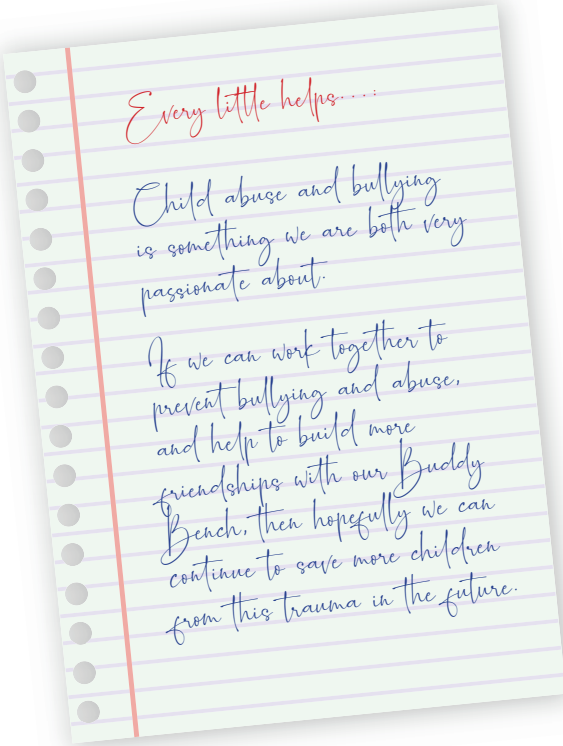 Every little helps....:
Child abuse and bullying
is something we are both very
passionate about.
If we can work together to
prevent bullying and abuse,
and help to build more
friendships with our Buddy
Bench, then hopefully we can
continue to save more children
from this trauma in the future.